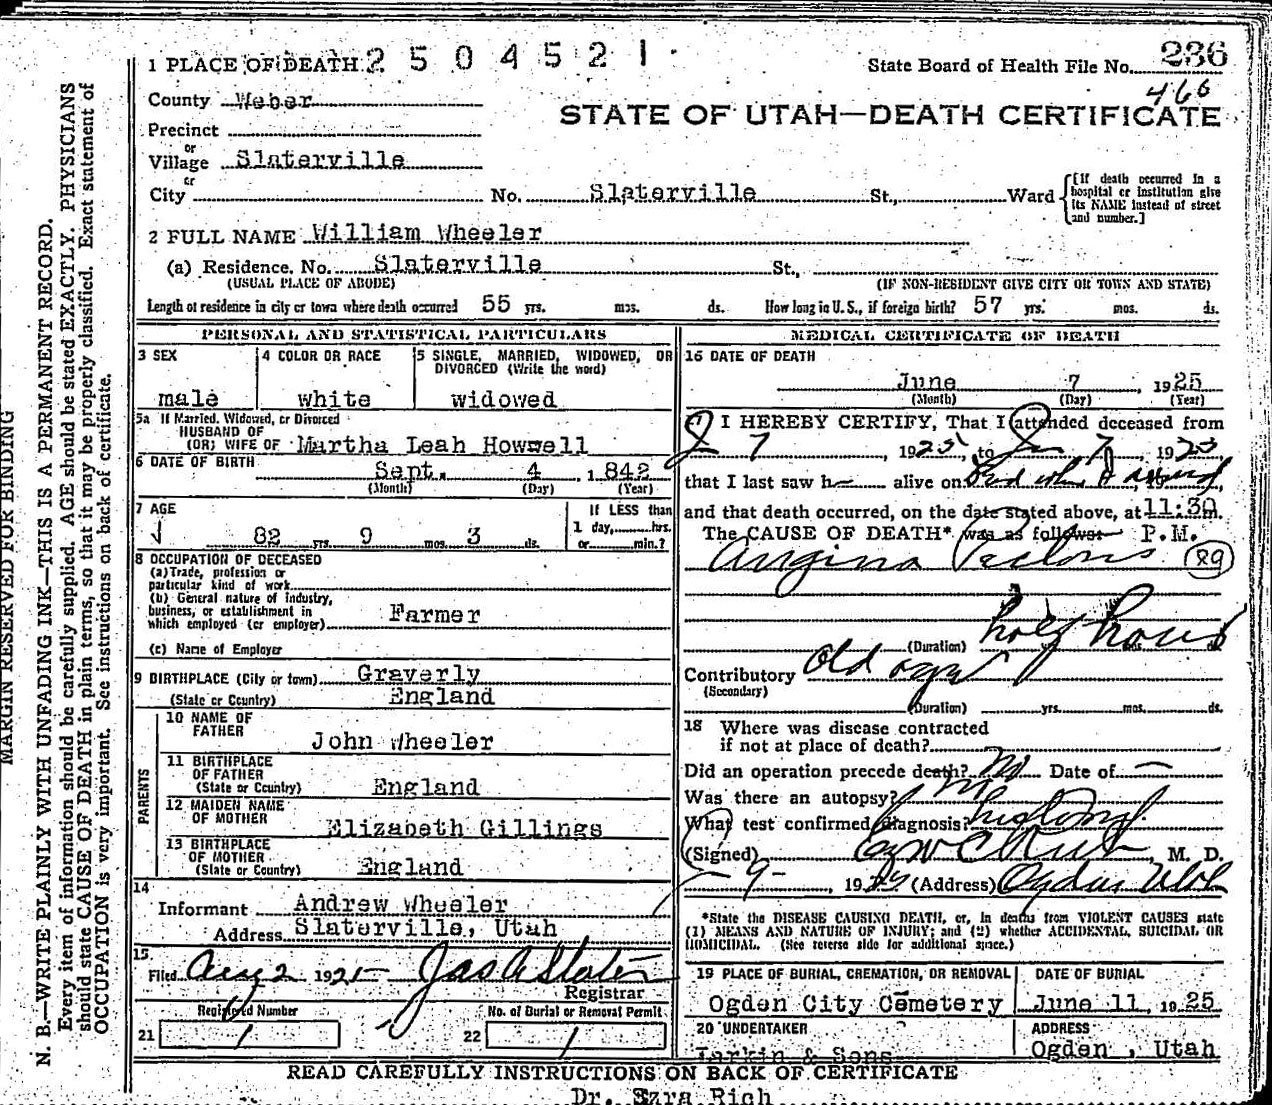 236
1 PLACE OF DEATH 2 5 0 4 5 2 1
State Board of Health File No. 466
County Weber
STATE OF UTAH—DEATH CERTIFICATE
Precinct
or
Village Slaterville
or
City No. Slaterville St., Ward
[If death occurred in a hospital or institution give its NAME instead of street and number.]
2 FULL NAME William Wheeler
(a) Residence. No. Slaterville St.,
(USUAL PLACE OF ABODE) (IF NON-RESIDENT GIVE CITY OR TOWN AND STATE)
Length of residence in city or town where death occurred 55 yrs. mos. ds. How long in U.S., if foreign birth? 57 yrs. mos. ds.
PERSONAL AND STATISTICAL PARTICULARS
3 SEX
male
4 COLOR OR RACE
white
5 SINGLE, MARRIED, WIDOWED, OR
DIVORCED (Write the word)
widowed
5a If Married, Widowed, or Divorced
HUSBAND OF
(OR) WIFE OF Martha Leah Howell
6 DATE OF BIRTH
Sept. 4 , 1842
(Month) (Day) (Year)
7 AGE
82 yrs. 9 mos. 3 ds.
If LESS than
1 day, hrs.
or min.?
8 OCCUPATION OF DECEASED
(a) Trade, profession or
particular kind of work
(b) General nature of industry,
business, or establishment in
which employed (or employer) Farmer
(c) Name of Employer
9 BIRTHPLACE (City or town) Graverly
(State or Country) England
PARENTS
10 NAME OF
FATHER
John Wheeler
11 BIRTHPLACE
OF FATHER
(State or Country) England
12 MAIDEN NAME
OF MOTHER
Elizabeth Gillings
13 BIRTHPLACE
OF MOTHER
(State or Country) England
14
Informant Andrew Wheeler
Address Slaterville, Utah
15
Filed Aug 2 1925 Jas A Slater
Registrar
Registered Number
No. of Burial or Removal Permit
21 1
22 1
MEDICAL CERTIFICATE OF DEATH
16 DATE OF DEATH
June 7 , 1925
(Month) (Day) (Year)
17 I HEREBY CERTIFY, That I attended deceased from
J 7 , 1925, to Jun 7 , 1925
that I last saw h alive on Dead when I arrived
and that death occurred, on the date stated above, at 11:30
The CAUSE OF DEATH* was as follows: P.M.
Angina Pectoris 89
(Duration) half hour
Contributory Old age
(Secondary)
(Duration) yrs. mos. ds.
18 Where was disease contracted
if not at place of death?
Did an operation precede death? No Date of —
Was there an autopsy? No
What test confirmed diagnosis? history
(Signed) M. D.
9- , 1925 (Address) Ogden Utah
*State the DISEASE CAUSING DEATH, or, in deaths from VIOLENT CAUSES state
(1) MEANS AND NATURE OF INJURY; and (2) whether ACCIDENTAL, SUICIDAL OR
HOMICIDAL. (See reverse side for additional space.)
19 PLACE OF BURIAL, CREMATION, OR REMOVAL
Ogden City Cemetery
DATE OF BURIAL
June 11, 1925
20 UNDERTAKER
Larkin & Sons
ADDRESS
Ogden , Utah
READ CAREFULLY INSTRUCTIONS ON BACK OF CERTIFICATE
Dr. Ezra Rich
MARGIN RESERVED FOR BINDING
N. B.—WRITE PLAINLY WITH UNFADING INK—THIS IS A PERMANENT RECORD.
Every item of information should be carefully supplied. AGE should be stated EXACTLY. PHYSICIANS
should state CAUSE OF DEATH in plain terms, so that it may be properly classified. Exact statement of
OCCUPATION is very important. See instructions on back of certificate.